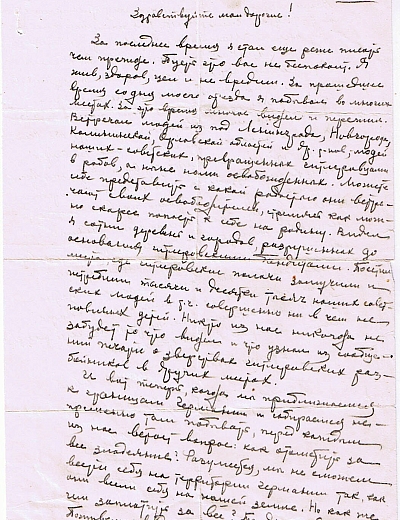 Здравствуйте мои дорогие!
За последнее время я стал еще реже писать
чем прежде. Пусть это вас не беспокоит. Я
жив, здоров, цел и не вредим. За прошедшее
время со дня моего отъезда я побывал во многих
местах. За это время многое видел и пережил.
Встречал людей из под Ленинграда, Новгорода,
Калининской, областей и др. р-нов, людей
наших - советских, превращенных гитлеровцами
в рабов, а ныне нами освобожденных. Можете
себе представить с какой радостью они встре-
чают своих освободителей, стремясь как мож-
но скорее попасть к себе на родину. Видел
я сотни деревень и городов, разрушенных до
основания гитлеровскими бандитами. Посетил
места, где гитлеровские палачи замучили и
истребили тысячи и десятки тысяч наших совет-
ских людей в т.ч. совершенно ни в чем не
повинных детей. Никто из нас никогда не
забудет то что видел и что узнал из сообще-
ний печати о зверствах гитлеровских раз-
бойников в других местах.
И вот теперь, когда мы приближаемся
к границам Германии и собираемся не-
пременно там побывать, перед каждым
из нас встает вопрос: как отомстить за
все злодеяния? Разумеется, мы не сможем
вести себя на территории Германии так, как
они вели себя на нашей земле. Но как же
им за все?